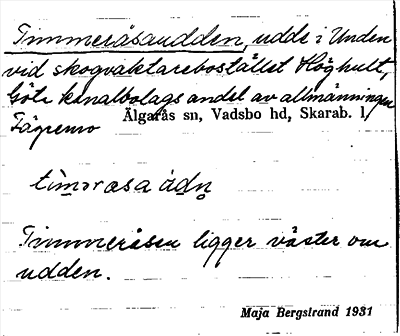 Timmeråsaudden, udde i Unden
vid skogvaktarebostället Höghult,
Göta kanalbolags andel av allmänningen
Älgarås sn, Vadsbo hd, Skarab. l,
Tåpremo
tìmərasa ùdn̥
Timmeråsen ligger väster om
udden.
Maja Bergstrand 1931